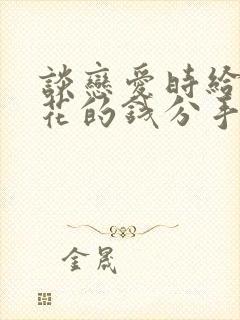 談戀愛時給
花的錢分手
金晟